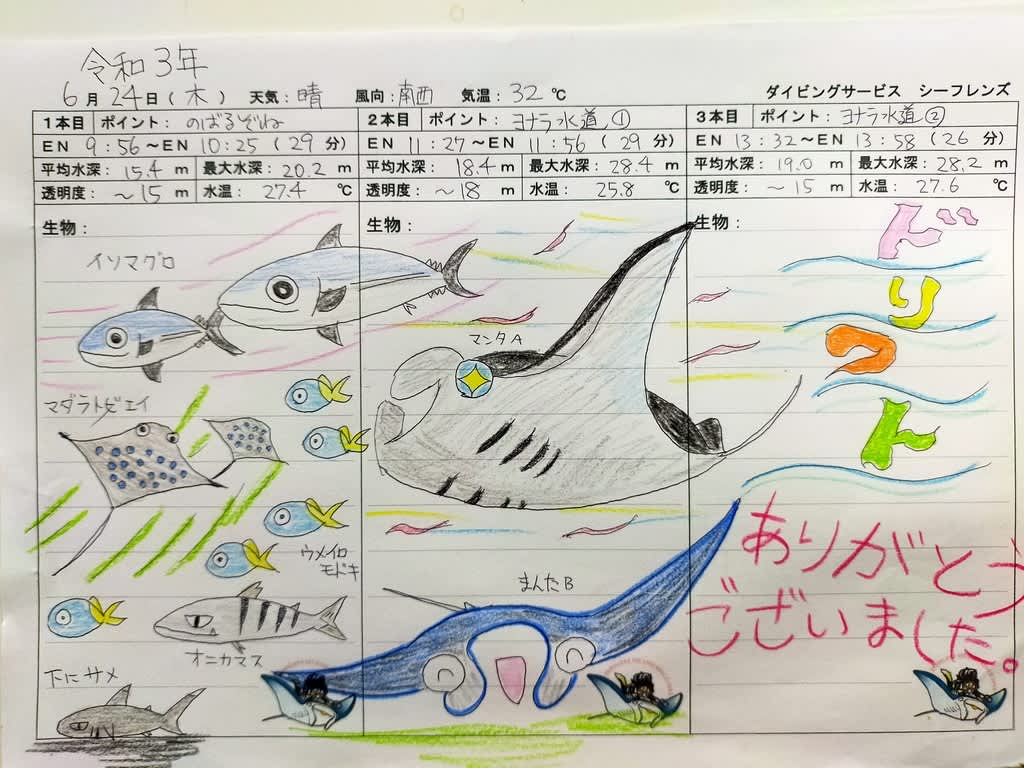 令和3年
6月24日(木) 天気:晴 風向:南西 気温:32℃ ダイビングサービス シーフレンズ
1本目 ポイント: のばるぞね
EN 9:56~EN 10:25 (29分)
平均水深: 15.4 m 最大水深: 20.2 m
透明度: ~15 m 水温: 27.4 ℃
生物:
イソマグロ
マダラトビエイ
ウメイロ
モドキ
オニカマス
下にサメ
2本目 ポイント: ヨナラ水道①
EN 11:27~EN 11:56 (29分)
平均水深: 18.4 m 最大水深: 28.4 m
透明度: ~18 m 水温: 25.8 ℃
生物:
マンタA
まんたB
3本目 ポイント: ヨナラ水道②
EN 13:32~EN 13:58 (26分)
平均水深: 19.0 m 最大水深: 28.2 m
透明度: ~15 m 水温: 27.6 ℃
生物:
ド
リ
フ
ト
ありがとう
ございました。